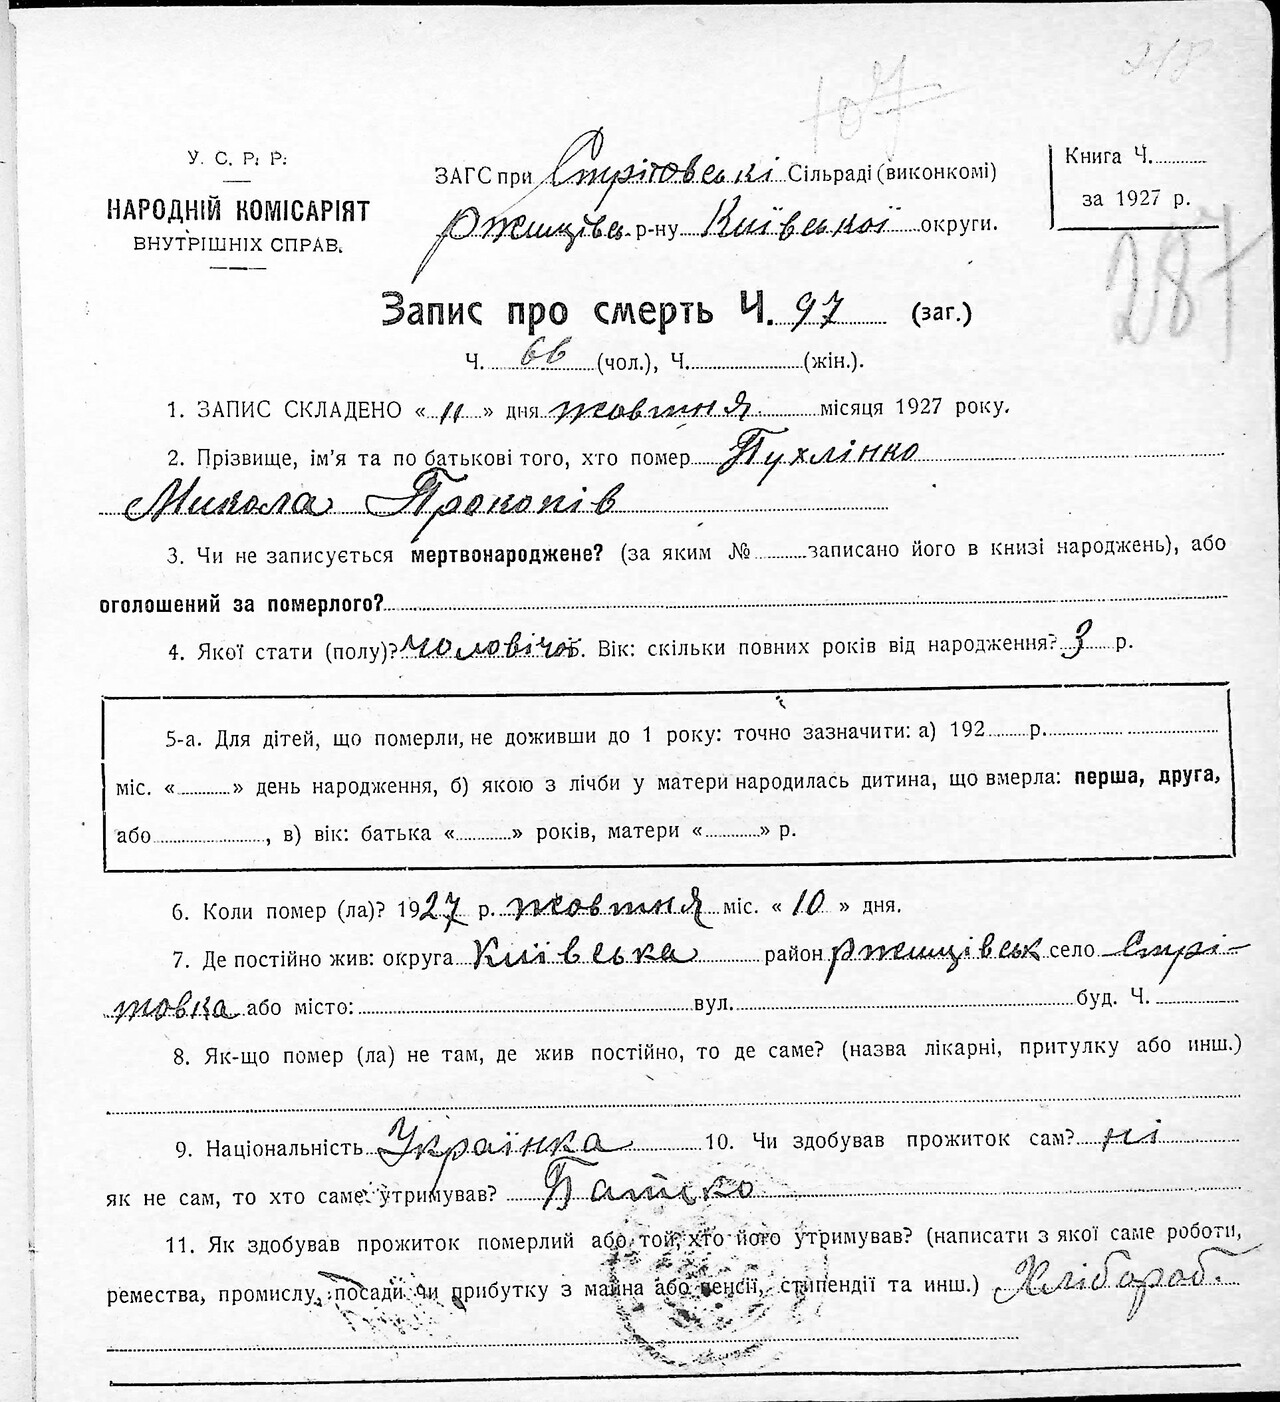 218
107
У. С. Р. Р.
НАРОДНІЙ КОМІСАРІЯТ
ВНУТРІШНІХ СПРАВ.
ЗАГС при Стрітовські Сільраді (виконкомі)
Ржищівсь. р-ну Київської округи.
Книга Ч.
за 1927 р.
287
Запис про смерть Ч. 97 (заг.)
Ч. 66 (чол.), Ч. (жін.).
1. ЗАПИС СКЛАДЕНО « 11 » дня жовтня місяця 1927 року.
2. Прізвище, ім'я та по батькові того, хто помер Пухлінко
Микола Прокопів
3. Чи не записується мертвонароджене? (за яким № записано його в книзі народжень), або
оголошений за померлого?
4. Якої стати (полу)? чоловічої. Вік: скільки повних років від народження? 3 р.
5-а. Для дітей, що померли, не доживши до 1 року: точно зазначити: а) 192 р.
міс. « » день народження, б) якою з лічби у матери народилась дитина, що вмерла: перша, друга,
або , в) вік: батька « » років, матери « » р.
6. Коли помер (ла)? 1927 р. жовтня міс. « 10 » дня.
7. Де постійно жив: округа Київська район Ржищівськ село Стрі-
товка або місто: вул. буд. Ч.
8. Як-що помер (ла) не там, де жив постійно, то де саме? (назва лікарні, притулку або инш.)
9. Національність Українка 10. Чи здобував прожиток сам? ні
як не сам, то хто саме утримував? Батько
11. Як здобував прожиток померлий або той, хто його утримував? (написати з якої саме роботи,
ремества, промислу, посади чи прибутку з майна або пенсії, стипендії та инш.) Хлібороб.